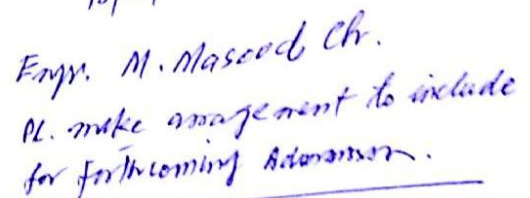 Engr. M. Masood Ch.
Pl. make arrangement to include
for forthcoming Admission.